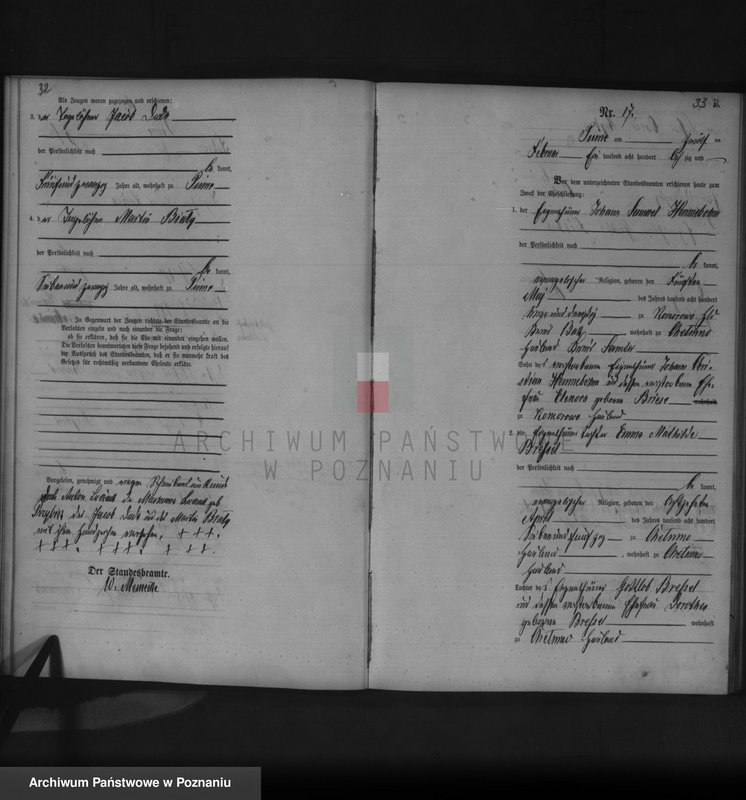 32
Als Zeugen waren zugezogen und erschienen:
3. der Tagelöhner Jacob Duda
der Persönlichkeit nach
be kannt,
Fünfundzwanzig Jahre alt, wohnhaft zu Pinne
4. der Tagelöhner Martin Bialy
der Persönlichkeit nach
be kannt,
Siebenundzwanzig Jahre alt, wohnhaft zu Pinne
In Gegenwart der Zeugen richtete der Standesbeamte an die
Verlobten einzeln und nach einander die Frage:
ob sie erklären, daß sie die Ehe mit einander eingehen wollen.
Die Verlobten beantworteten diese Frage bejahend und erfolgte hierauf
der Ausspruch des Standesbeamten, daß er sie nunmehr kraft des
Gesetzes für rechtmäßig verbundene Eheleute erkläre.
Vorgelesen, genehmigt und wegen Schreibensunkunde
Anton der Marianna geb
des Jacob Duda und des Martin Bialy
mit ihren Handzeichen versehen. +++.
+++. +++. +++.
Der Standesbeamte.
W.
33 B.
Nr. 17.
Pinne am Zwölf ten
Februar Ein tausend acht hundert Acht zig und
Vor dem unterzeichneten Standesbeamten erschienen heute zum
Zweck der Eheschließung:
1. der Eigenthümer Johann Samuel Henneborn
der Persönlichkeit nach
be kannt,
evangelischer Religion, geboren den Fünften
Mai des Jahres tausend acht hundert
zu Komorowo
Kreis wohnhaft zu Chelmno
Hauland Kreis Samter
Sohn des verstorbenen Eigenthümers Johann Chri-
stian Henneborn und dessen verstorbenen Ehe-
frau Eleonore geborene Briese wohnhaft
zu Komorowo Hauland
2. die Eigenthümer Tochter Emma Mathilde
Bressel
der Persönlichkeit nach
be kannt,
evangelischer Religion, geboren den Achtzehnten
April des Jahres tausend acht hundert
Siebenundfünfzig zu Chelmno
Hauland, wohnhaft zu Chelmno
Hauland
Tochter des Eigenthümers Gottlob Bressel
und dessen verstorbenen Ehefrau Dorothea
geborene Bressel wohnhaft
zu Chelmno Hauland
ARCHIWUM PAŃSTWOWE
W POZNANIU
Archiwum Państwowe w Poznaniu